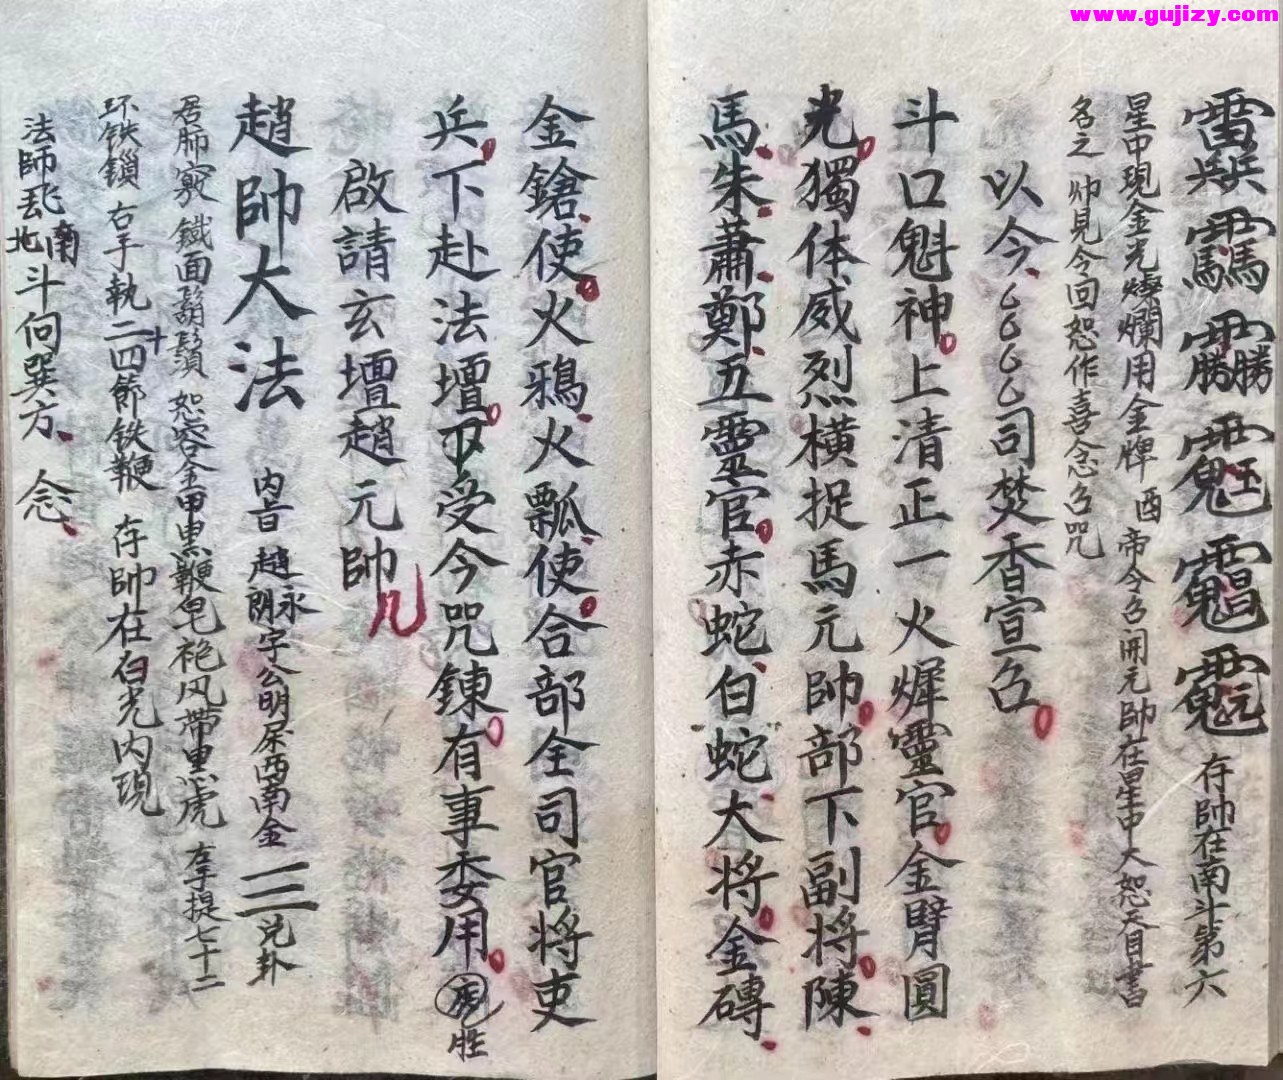 www.gujizy.com
存帥在南斗第六
星中現金光燦爛用金牌 酉 帝令召開元帥在星中大恕天目書
名之 帅見令回恕作喜念召咒
以今〻〻〻〻司焚香宣召
斗口魁神上清正一火犀靈官金臂圓
光獨体威烈横捉馬元帥部下副将陳
馬朱蕭鄭五靈官赤蛇白蛇大将金磚
金鎗使火鴉火瓢使合部全司官将吏
兵下赴法壇下受今咒鍊有事委用
啟請玄壇趙元帥
趙帥大法 内音 趙永朗字公明 西南金 三 兑卦
居肺竅 鐵面鬍鬚 恕容金甲黑鞭皂袍风带黑虎 左手提七十二
环铁鎖 右手執二十四節铁鞭 存帥在白光内現
法師 南北斗向巽方 念